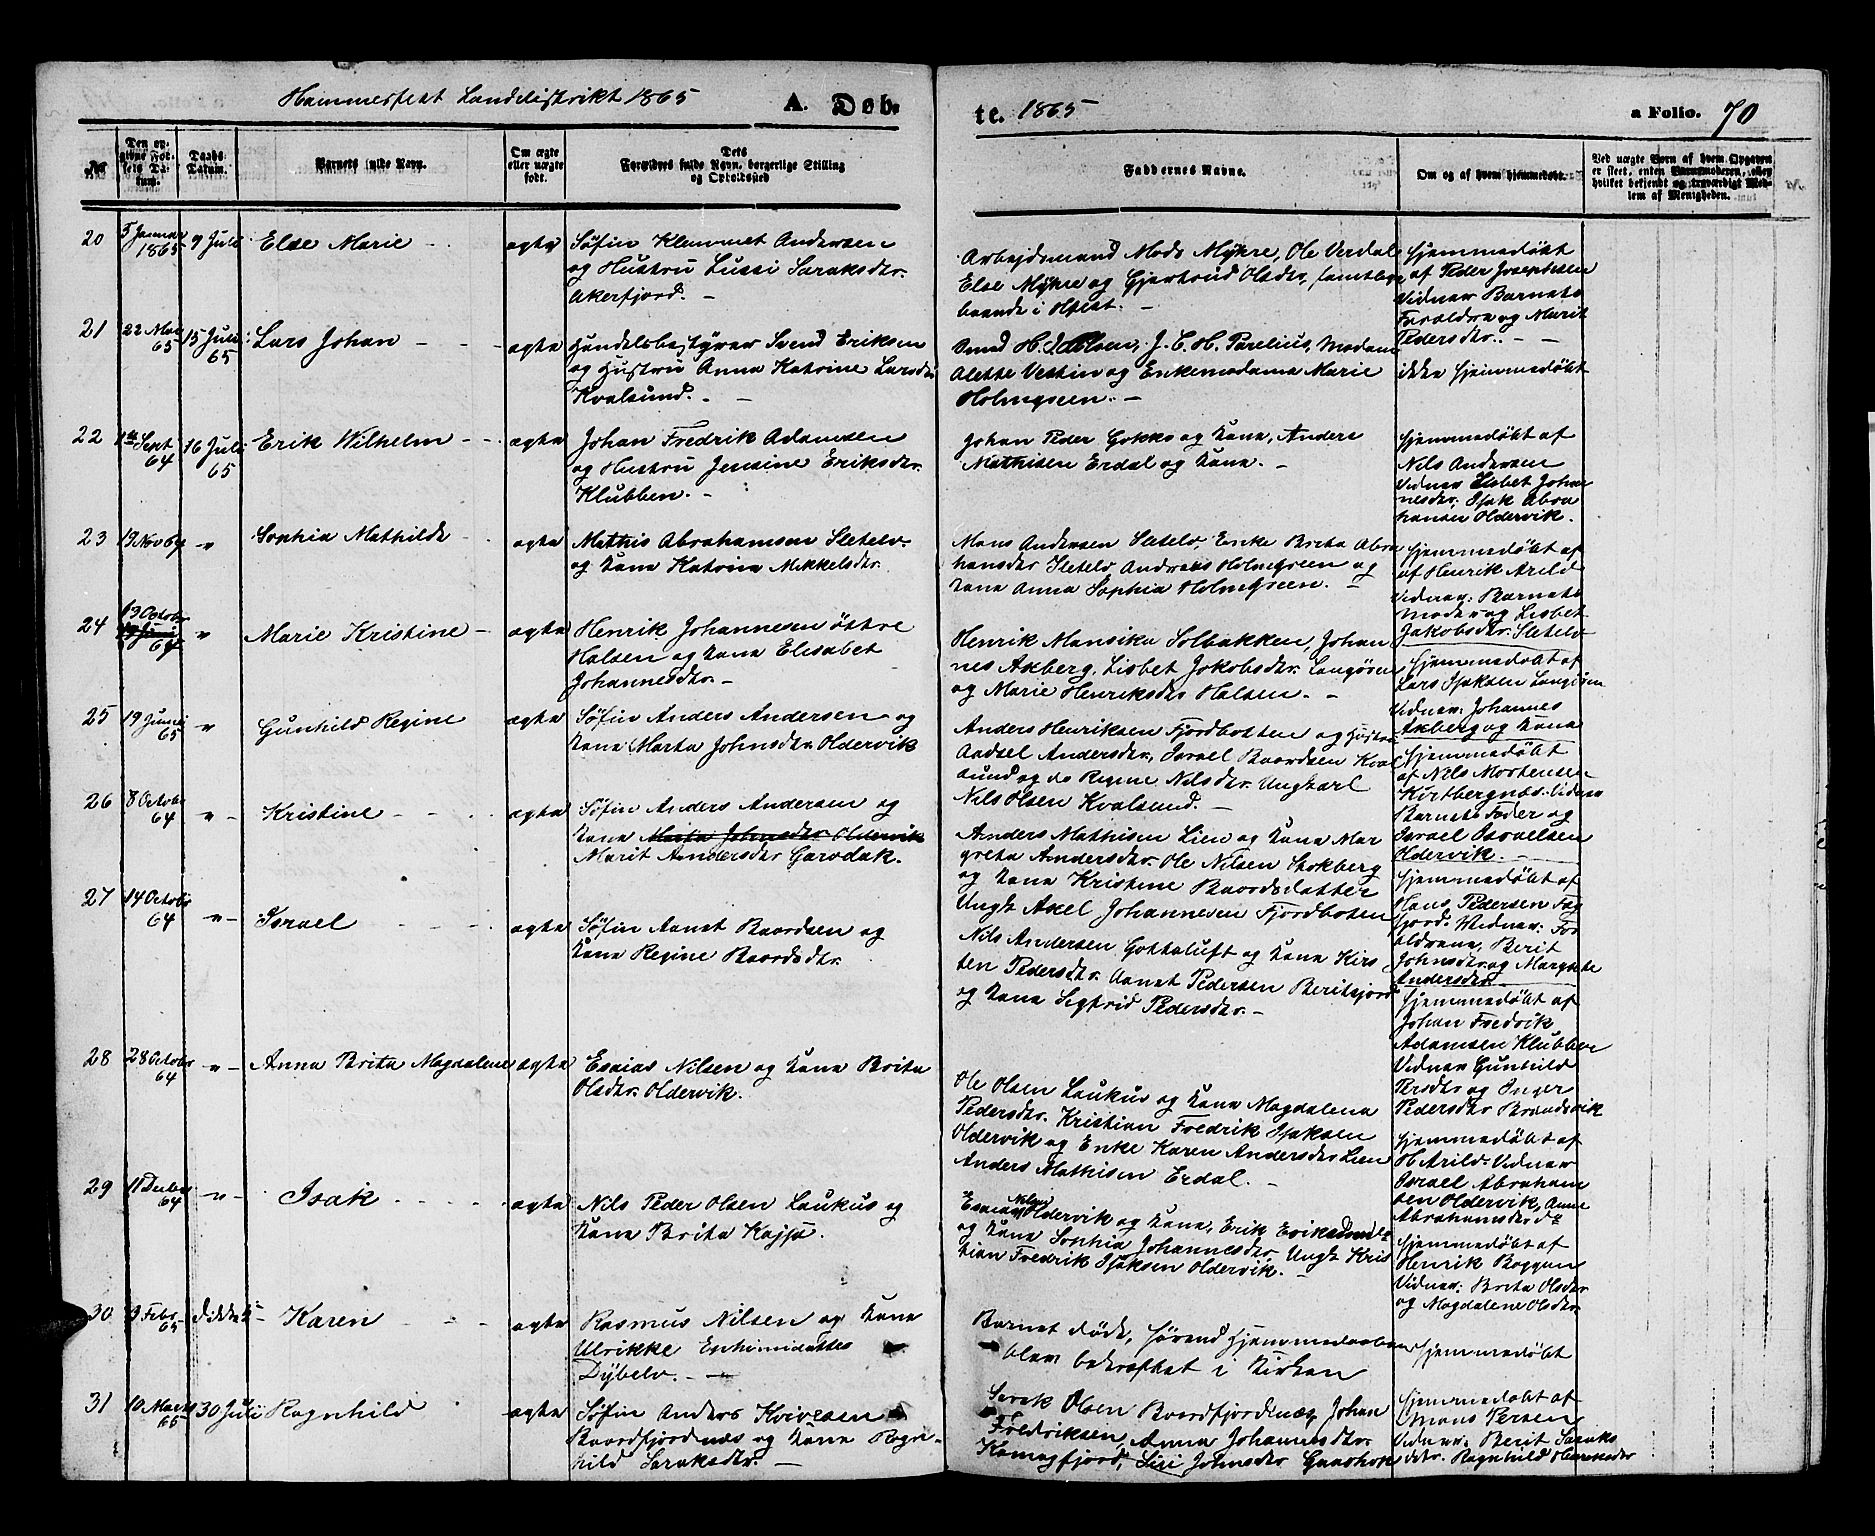 Hammerfest Landdistrikt 1865 A. Døb-
te. 1865 a Folio. 70
No
Den op-
givne Fød-
sels Da-
tum.
Daabs-
Datum.
Barnets fulde Navn.
Om ægte
eller uægte
født.
Dets
Forældres fulde Navn, borgerlige Stilling
og Opholdssted
Faddernes Navne.
Om og af hvem hjemmedøbt.
Ved uægte Børn af hvem Opgaven
er skeet, enten Barnemoderen, eller
hvilket bekjendt og troværdigt Med-
lem af Menigheden.
20 5 Januar 1865 9 Juli Else Marie ægte
Søfin Klemmet Andersen
og Hustru Lussi Saraksdtr.
Akerfjord. -
Arbejdsmand Mads Myhre, Ole Verdal
Else Myhre og Gjertrud Olsdtr, samtlige
boende i Hfest. -
Hjemmedøbt
af Peder Josephsen
Vidner Barnets
Forældre og Marit
Pedersdtr. -
21 22 Mai 65 15 Juli 65 Lars Johan ægte
Handelsbestyrer Svend Eriksen
og Hustru Anna Katrine Larsdtr
Kvalsund. -
J. C. H. Parelius, Madam
Alette Vestin og Enkemadama Marie
Holmgreen. -
ikke hjemmedøbt
22 1ste Sept 64 16 Juli 65 Erik Wilhelm ægte
Johan Fredrik Adamsen
og Hustru Jensine Eriksdtr.
Klubben. -
Johan Peder Gokko og Kone, Anders
Mathisen Erdal og Kone. -
Hjemmedøbt af
Nils Andersen
Vidner Lisbet Johan
nesdtr. Isak Abra
hamsen Oldervik.
23 19 Nov 64 " Sophia Mathilde ægte
Mathis Abrahamsen Sletelv.
og Kone Katrine Mikkelsdtr.
Mons Andersen Sletelv, Enke Brita Abra
hamsdtr Sletelv Andreas Holmgreen og
Kone Anna Sophia Holmgreen. -
Hjemmedøbt af
af Henrik Arild
Vidner: Barnets
Moder og Lisbet
Jakobsdtr. Sletelv
24 13 Octobr 64 " Marie Kristine ægte
Henrik Johannesen østre
Halsen og Kone Elisabet
Johannesdtr. -
Henrik Mansika Solbakken, Johan
nes Akberg, Lisbet Jakobsdtr. Langøren
og Marie Henriksdtr Halsen. -
Hjemmedøbt af
Lars Isaksen Langøren
Vidner: Johannes
Akberg og Kone
25 19 Juni 65 " Gunhild Regine ægte
Søfin Anders Andersen og
Kone Marta Johnsdtr Oldervik
Anders Henriksen Fjordbotten og Hustru
Andsel Andersdtr, Israel Baardsen Kval
sund og do Regine Nilsdtr. Ungkarl
Nils Olsen Kvalsund. -
Hjemmedøbt
af Nils Mortensen
Vidner
Barnets Fader og
Israel Israelsen
Oldervik. -
26 8 Octobr 64 " Kristine ægte
Søfin Anders Andersen og
Kone Marta Johnsdtr Oldervik
Marit Andersdtr Garodak.
Anders Mathisen Lien og Kone Mar
greta Andersdtr. Ole Nilsen Stokberg
og Kone Kristine Baardsdatter
Ungk Axel Johannesen Fjordboten
Hjemmedøbt af
Hans Pedersen
fjord. Widner: For
ældrene, Berit
Johnsdtr og Margrete
Andersdtr
27 14 Octobr 64 " Israel ægte
Søfin Aanet Baardsen og
Kone Regine Baardsdtr.
Nils Andersen Gottaluft og Kone Kirs
ten Pedersdtr. Aanet Pedersen Beritsjord
og Kone Sigfrid Pedersdtr. -
Hjemmedøbt af
Johan Fredrik
Adamsen Klubben
Vidner Gunhild
Persdtr og Inger
Pedersdtr Brandsvik
28 28 Octobr 64 " Anna Brita Magdalene ægte
Esaias Nilsen og Kone Brita
Olsdtr. Oldervik.
Ole Olsen Laukus og Kone Magdalena
Pedersdtr. Kristian Fredrik Isaksen
Oldervik og Enke Karen Andersdtr Lien
Anders Mathisen Erdal. -
Hjemmedøbt af
H Arild. Vidner
Israel Abraham
sen Oldervik, Anne
Abrahamsdtr do
29 11 Decbr 64 " Isak ægte
Nils Peder Olsen Laukus og
Kone Brita Kajsa.
Esaias Nilsen Oldervik og Kone, Erik
og Kone Sophia Johannesdtr, Ungk Kris
tian Fredrik Isaksen Oldervik. -
Hjemmedøbt af
Henrik Boggen
Vidner: Brita Olsdtr
og Magdalene Olsdtr
30 9 Febr 65 Karen ægte
Rasmus Nilsen og Kone
Ulrikke
Dybelv. -
Barnet døde, førend Hjemmedaaben
blev bekræftet i Kirken
Hjemmedøbt
31 10 Marts 65 30 Juli Ragnhild ægte
Søfin Anders Kvivesen
Baardfjordnæs og Kone Ragn-
hild Saraksdtr. -
Olsen Baardfjordnæs, Johan
Fredriksen, Anna Johannesdtr
Komagfjord, Siri Johnsdtr
Hjemmedøbt af
Mons Persen
Vidner: Berit Saraks
dtr. Ragnhild